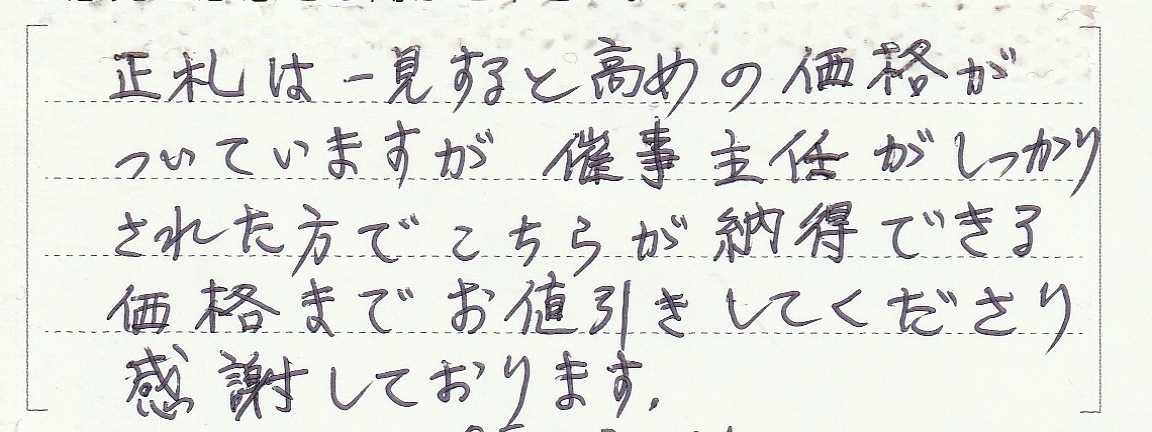 正札は一見すると高めの価格が
ついていますが 催事主任がしっかり
された方でこちらが納得できる
価格までお値引きしてくださり
感謝しております.